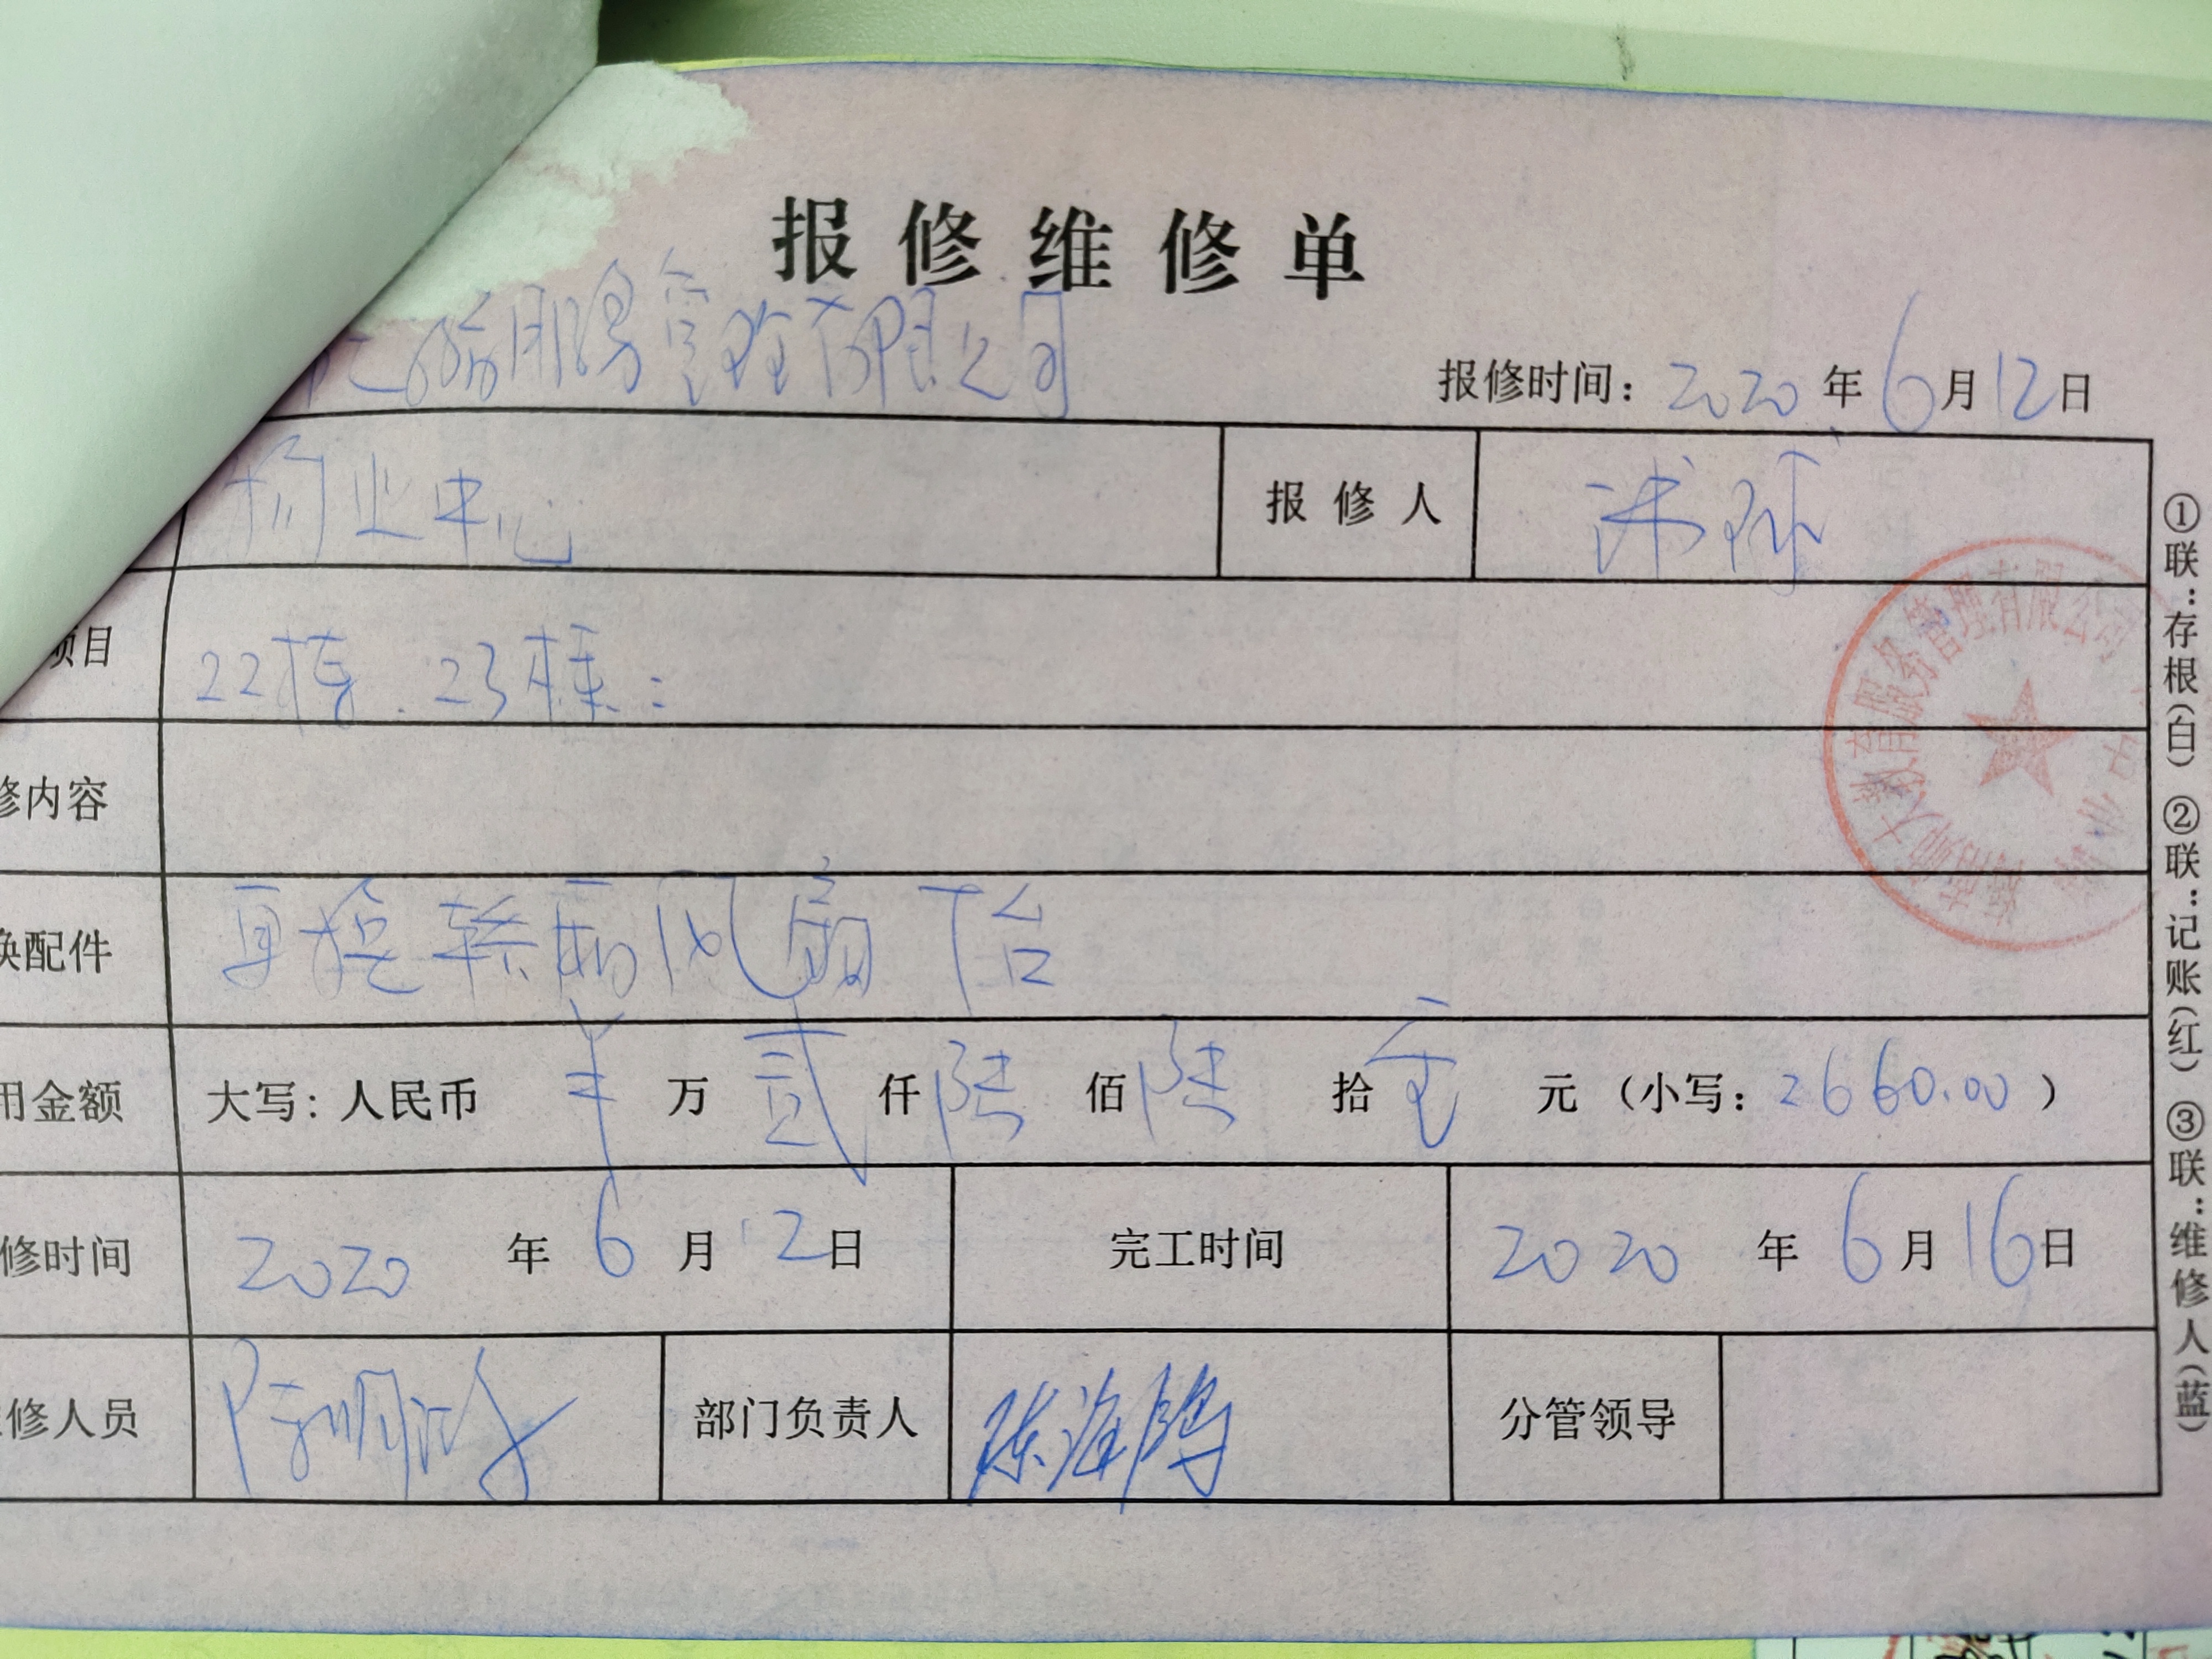 报修维修单
管理有限公司
报修时间：2020年6月12日
物业中心
报修人
项目
22栋、23栋：
修内容
换配件
更换轿厢风扇 台
用金额
大写：人民币 ¥ 万 贰 仟 陆 佰 陆 拾 元（小写：2660.00）
修时间
2020年6月12日
完工时间
2020年6月16日
修人员
部门负责人
陈海鸥
分管领导
①联：存根（白）②联：记账（红）③联：维修人（蓝）
教育服务管理有限公司